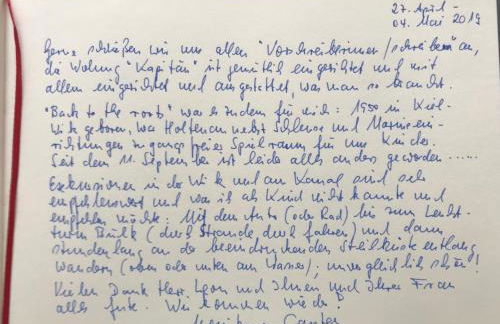 27. April -
04. Mai 2019
Gerne schließen wir uns allen "Vorschreiberinnen/schreibern" an,
die Wohnung "Kapitän" ist gemütlich eingerichtet und mit
allem eingerichtet und ausgestattet, was man so braucht.
"Back to the roots" war es zudem für mich: 1950 in Kiel-
Wik geboren, war Holtenau nebst Schleuse und Marineein-
richtungen ganz freier Spielraum für uns Kinder.
Seit dem 11. September ist leider alles anders geworden ......
Exkursionen in der Wik und am Kanal sind sehr
empfehlenswert und was ich als Kind nicht kannte und
empfehlen möchte: Mit dem Auto (oder Rad) bis zum Leucht-
turm Bülk (durch Strande durch fahren) und dann
stundenlang an der beeindruckenden Steilküste entlang
wandern (oben oder unten am Wasser), unvergleichlich schön!
Vielen Dank Herr und Ihnen und Ihrer Frau
alles Gute. Wir kommen wieder!